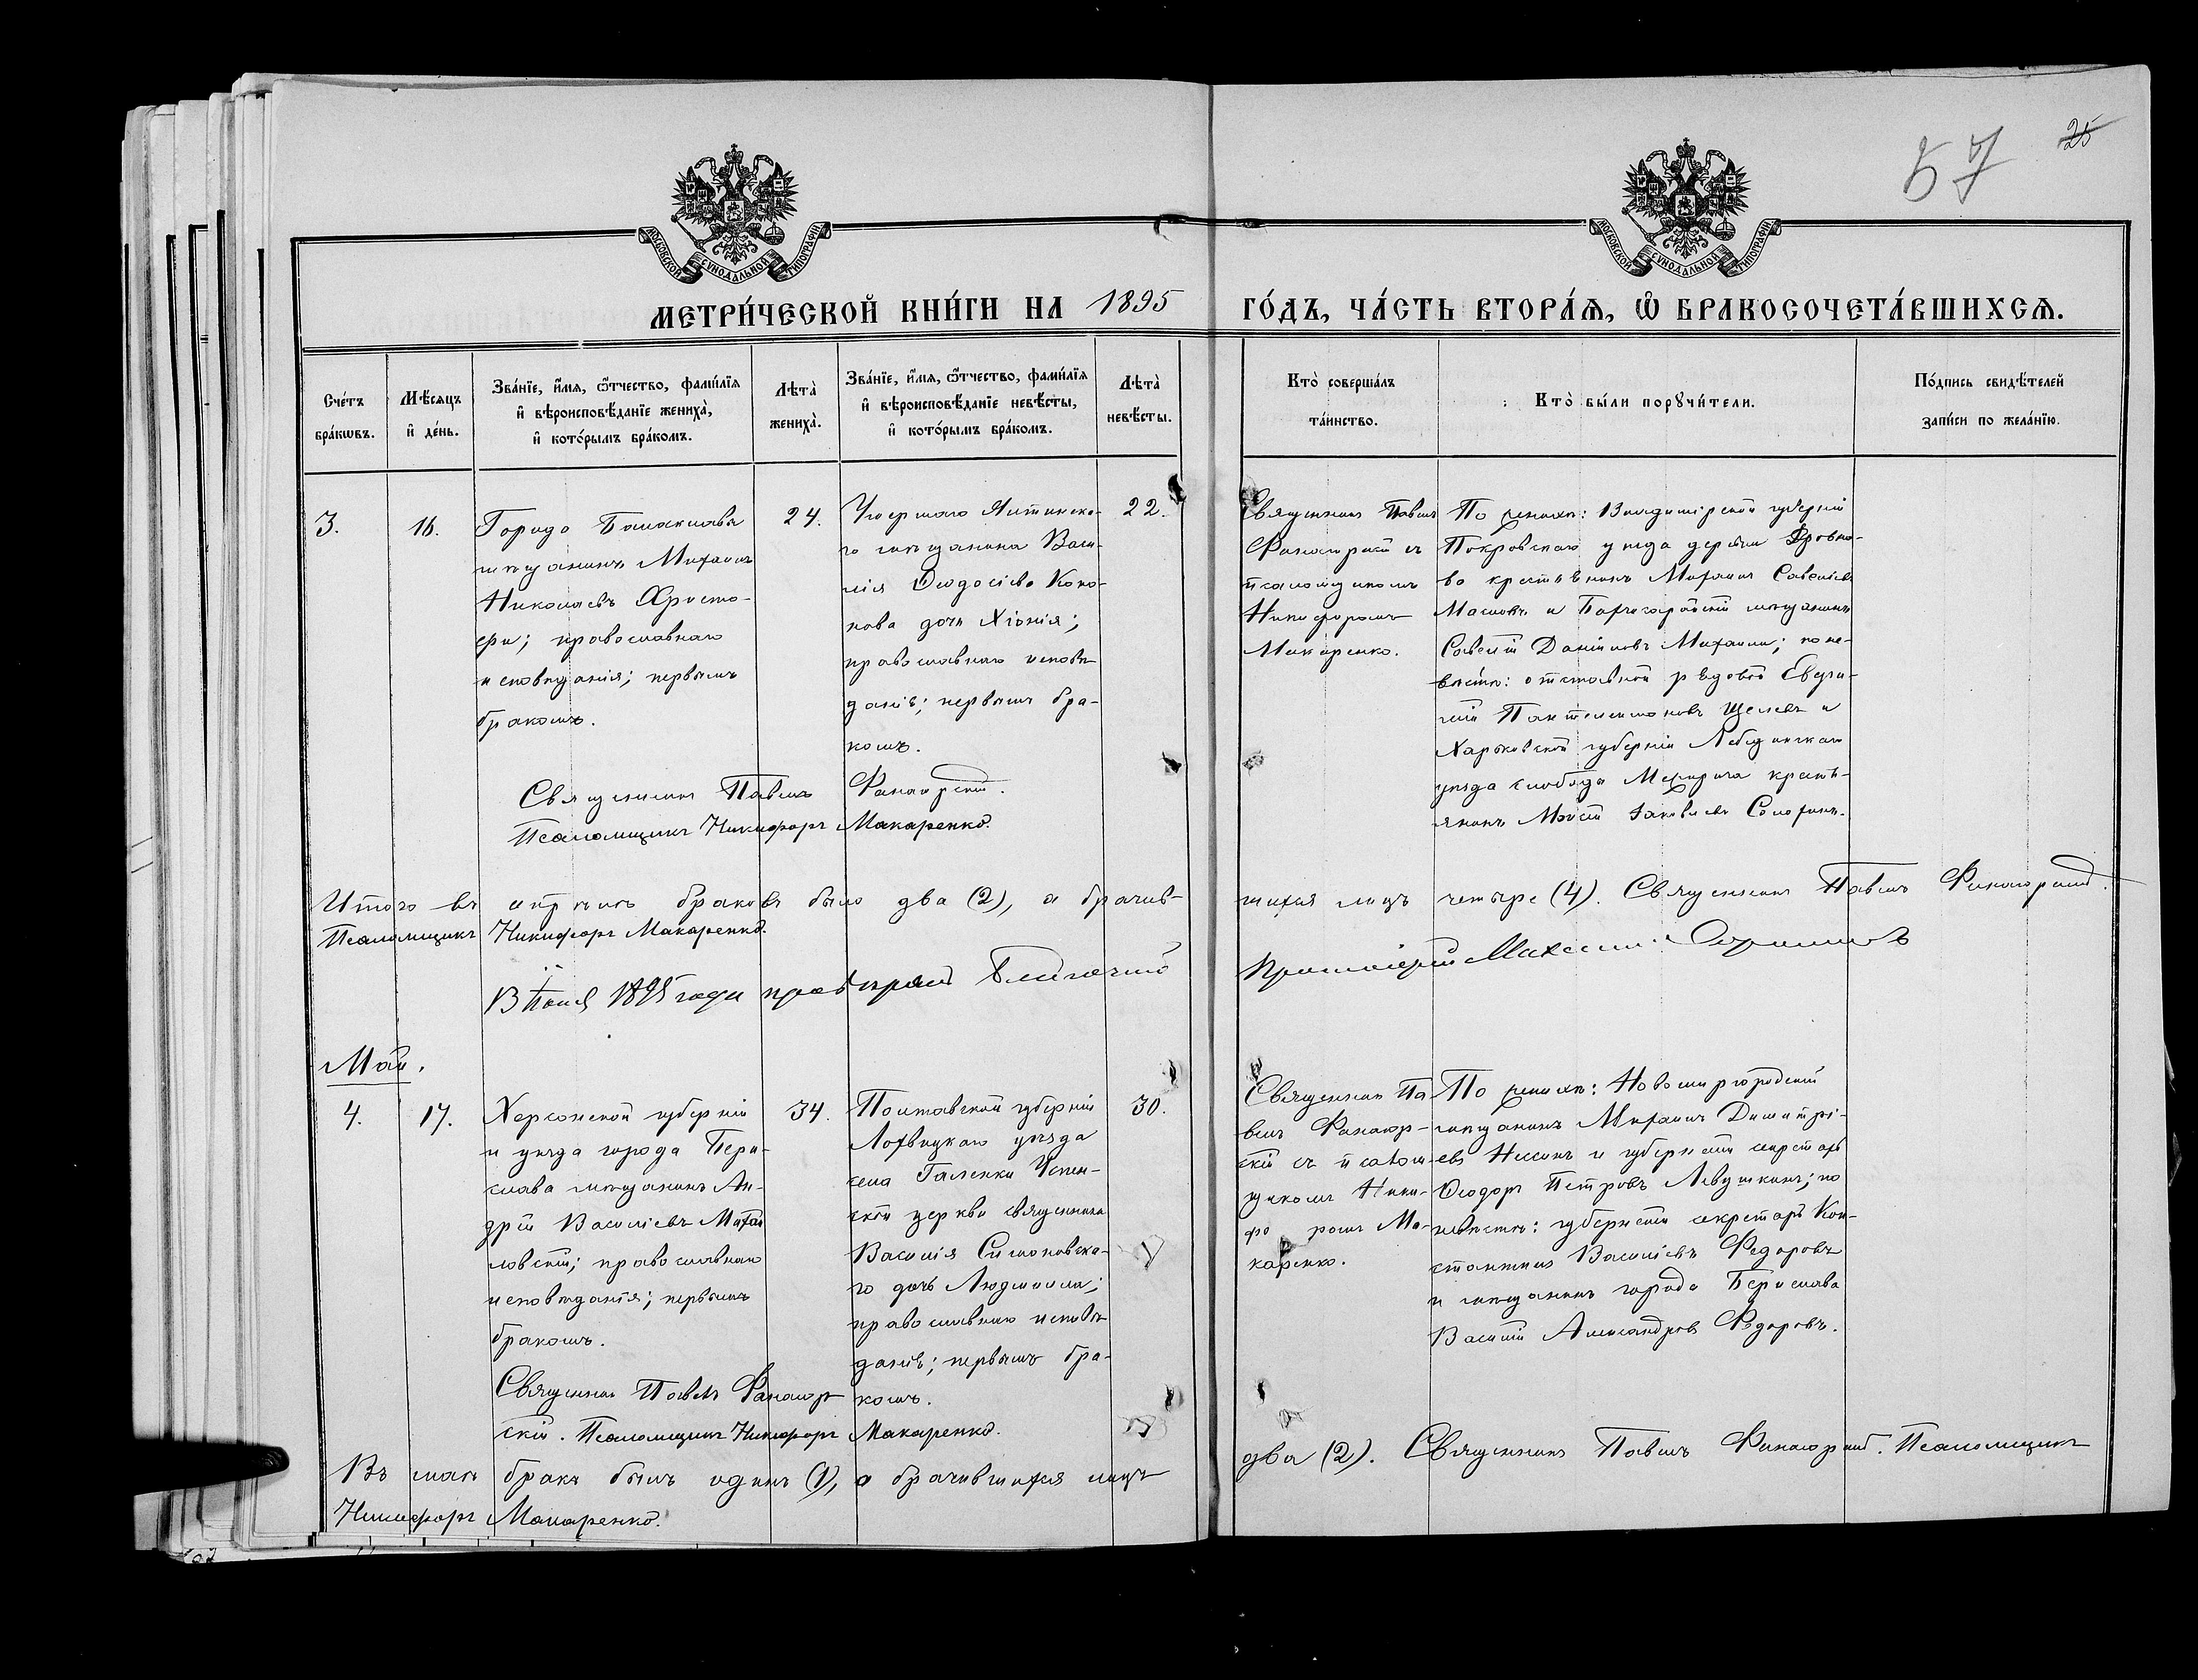 57 25
МОСКОВСКОЙ СѴНОДАЛЬНОЙ ТИПОГРАФІИ
МОСКОВСКОЙ СѴНОДАЛЬНОЙ ТИПОГРАФІИ
МЕТРИ́ЧЕСКОЙ КНИ́ГИ НА 1895 ГО́ДЪ, ЧА́СТЬ ВТОРА́Ѧ, Ѡ҆ БРАКОСОЧЕТА́ВШИХСѦ.
Сче́тъ
бра́кѡвъ.
Мѣ́сѧцъ
и҆ де́нь.
Зва́нїе, и҆́мѧ, ѻ҆́тчество, фами́лїѧ
и҆ вѣроисповѣ́данїе жениха̀,
и҆ кото́рымъ бра́комъ.
Лѣта̀
жениха̀.
Зва́нїе, и҆́мѧ, ѻ҆́тчество, фами́лїѧ
и҆ вѣроисповѣ́данїе невѣ́сты,
и҆ кото́рымъ бра́комъ.
Лѣта̀
невѣ́сты.
Кто̀ соверша́лъ
та́инство.
Кто̀ бы́ли порꙋчи́тели.
По́дпись свидѣ́телей
за́писи по жела́нїю.
3.
16.
Города Балаклавы
мѣщанинъ Михаилъ
Николаевъ Христо-
фи; православнаго
исповѣданія; первымъ
бракомъ.
24.
Умершаго Ялтинска-
го мѣщанина Васи-
лія Ѳеодосіева Коно-
нова дочь Хіонія;
православнаго исповѣ
данія; первымъ бра-
комъ.
22.
Священникъ Павелъ
Фанагорскій съ
псаломщикомъ
Никифоромъ
Макаренко.
По женихѣ: Владимірской губерніи
Покровскаго уѣзда деревни
во крестьянинъ Михаилъ Савельевъ
Масловъ и мѣщанинъ
Савелій Даніиловъ Михаилъ; по не-
вѣстѣ: отставной рядовой Евге-
ній Пантелеимоновъ Щелевъ и
Харьковской губерніи Лебединскаго
уѣзда слободы Межирича кресть-
янинъ Моисей Іаковлевъ
Священникъ Павелъ Фанагорскій.
Псаломщикъ Никифоръ Макаренко.
Итого въ апрѣлѣ браковъ было два (2), а брачив-
шихся лицъ четыре (4). Священникъ Павелъ Фанагорскій.
Псаломщикъ Никифоръ Макаренко.
1895 года Благочинный
Протоіерей
Май.
4.
17.
Херсонской губерніи
и уѣзда города Бери-
слава мѣщанинъ Ан-
дрей Василіевъ Михай
ловскій; православнаго
исповѣданія; первымъ
бракомъ.
34.
Полтавской губерніи
Лохвицкаго уѣзда
села Галенки Успен-
ской церкви священника
Василія Симоновска-
го дочь Людмила;
православнаго исповѣ
данія; первымъ бра-
комъ.
30.
Священникъ Па-
велъ Фанагор-
скій съ псалом-
щикомъ Ники-
форомъ Ма-
каренко.
По женихѣ: Новомиргородскій
мѣщанинъ Михаилъ Димитрі-
евъ и губернскій секретарь
Ѳеодоръ Петровъ Левушкинъ; по
невѣстѣ: губернскій секретарь Кон-
стантинъ Василіевъ Федоровъ
и мѣщанинъ города Берислава
Василій Александровъ Федоровъ.
Священникъ Павелъ Фанагор
скій. Псаломщикъ Никифоръ Макаренко.
Въ маѣ бракъ былъ одинъ (1), а брачившихся лицъ
два (2). Священникъ Павелъ Фанагорскій. Псаломщикъ
Никифоръ Макаренко.